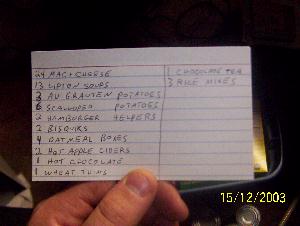 24 MAC+CHEESE
13 LIPTON SOUPS
3 AU GRAUTEN POTATOES
6 SCALLOPED POTATOES
2 HAMBURGER HELPERS
2 BISQUIKS
4 OATMEAL BOXES
2 HOT APPLE CIDERS
1 HOT CHOCOLATE
1 WHEAT THINS
1 CHOCOLATE TEA
3 RICE MIXES
15/12/2003